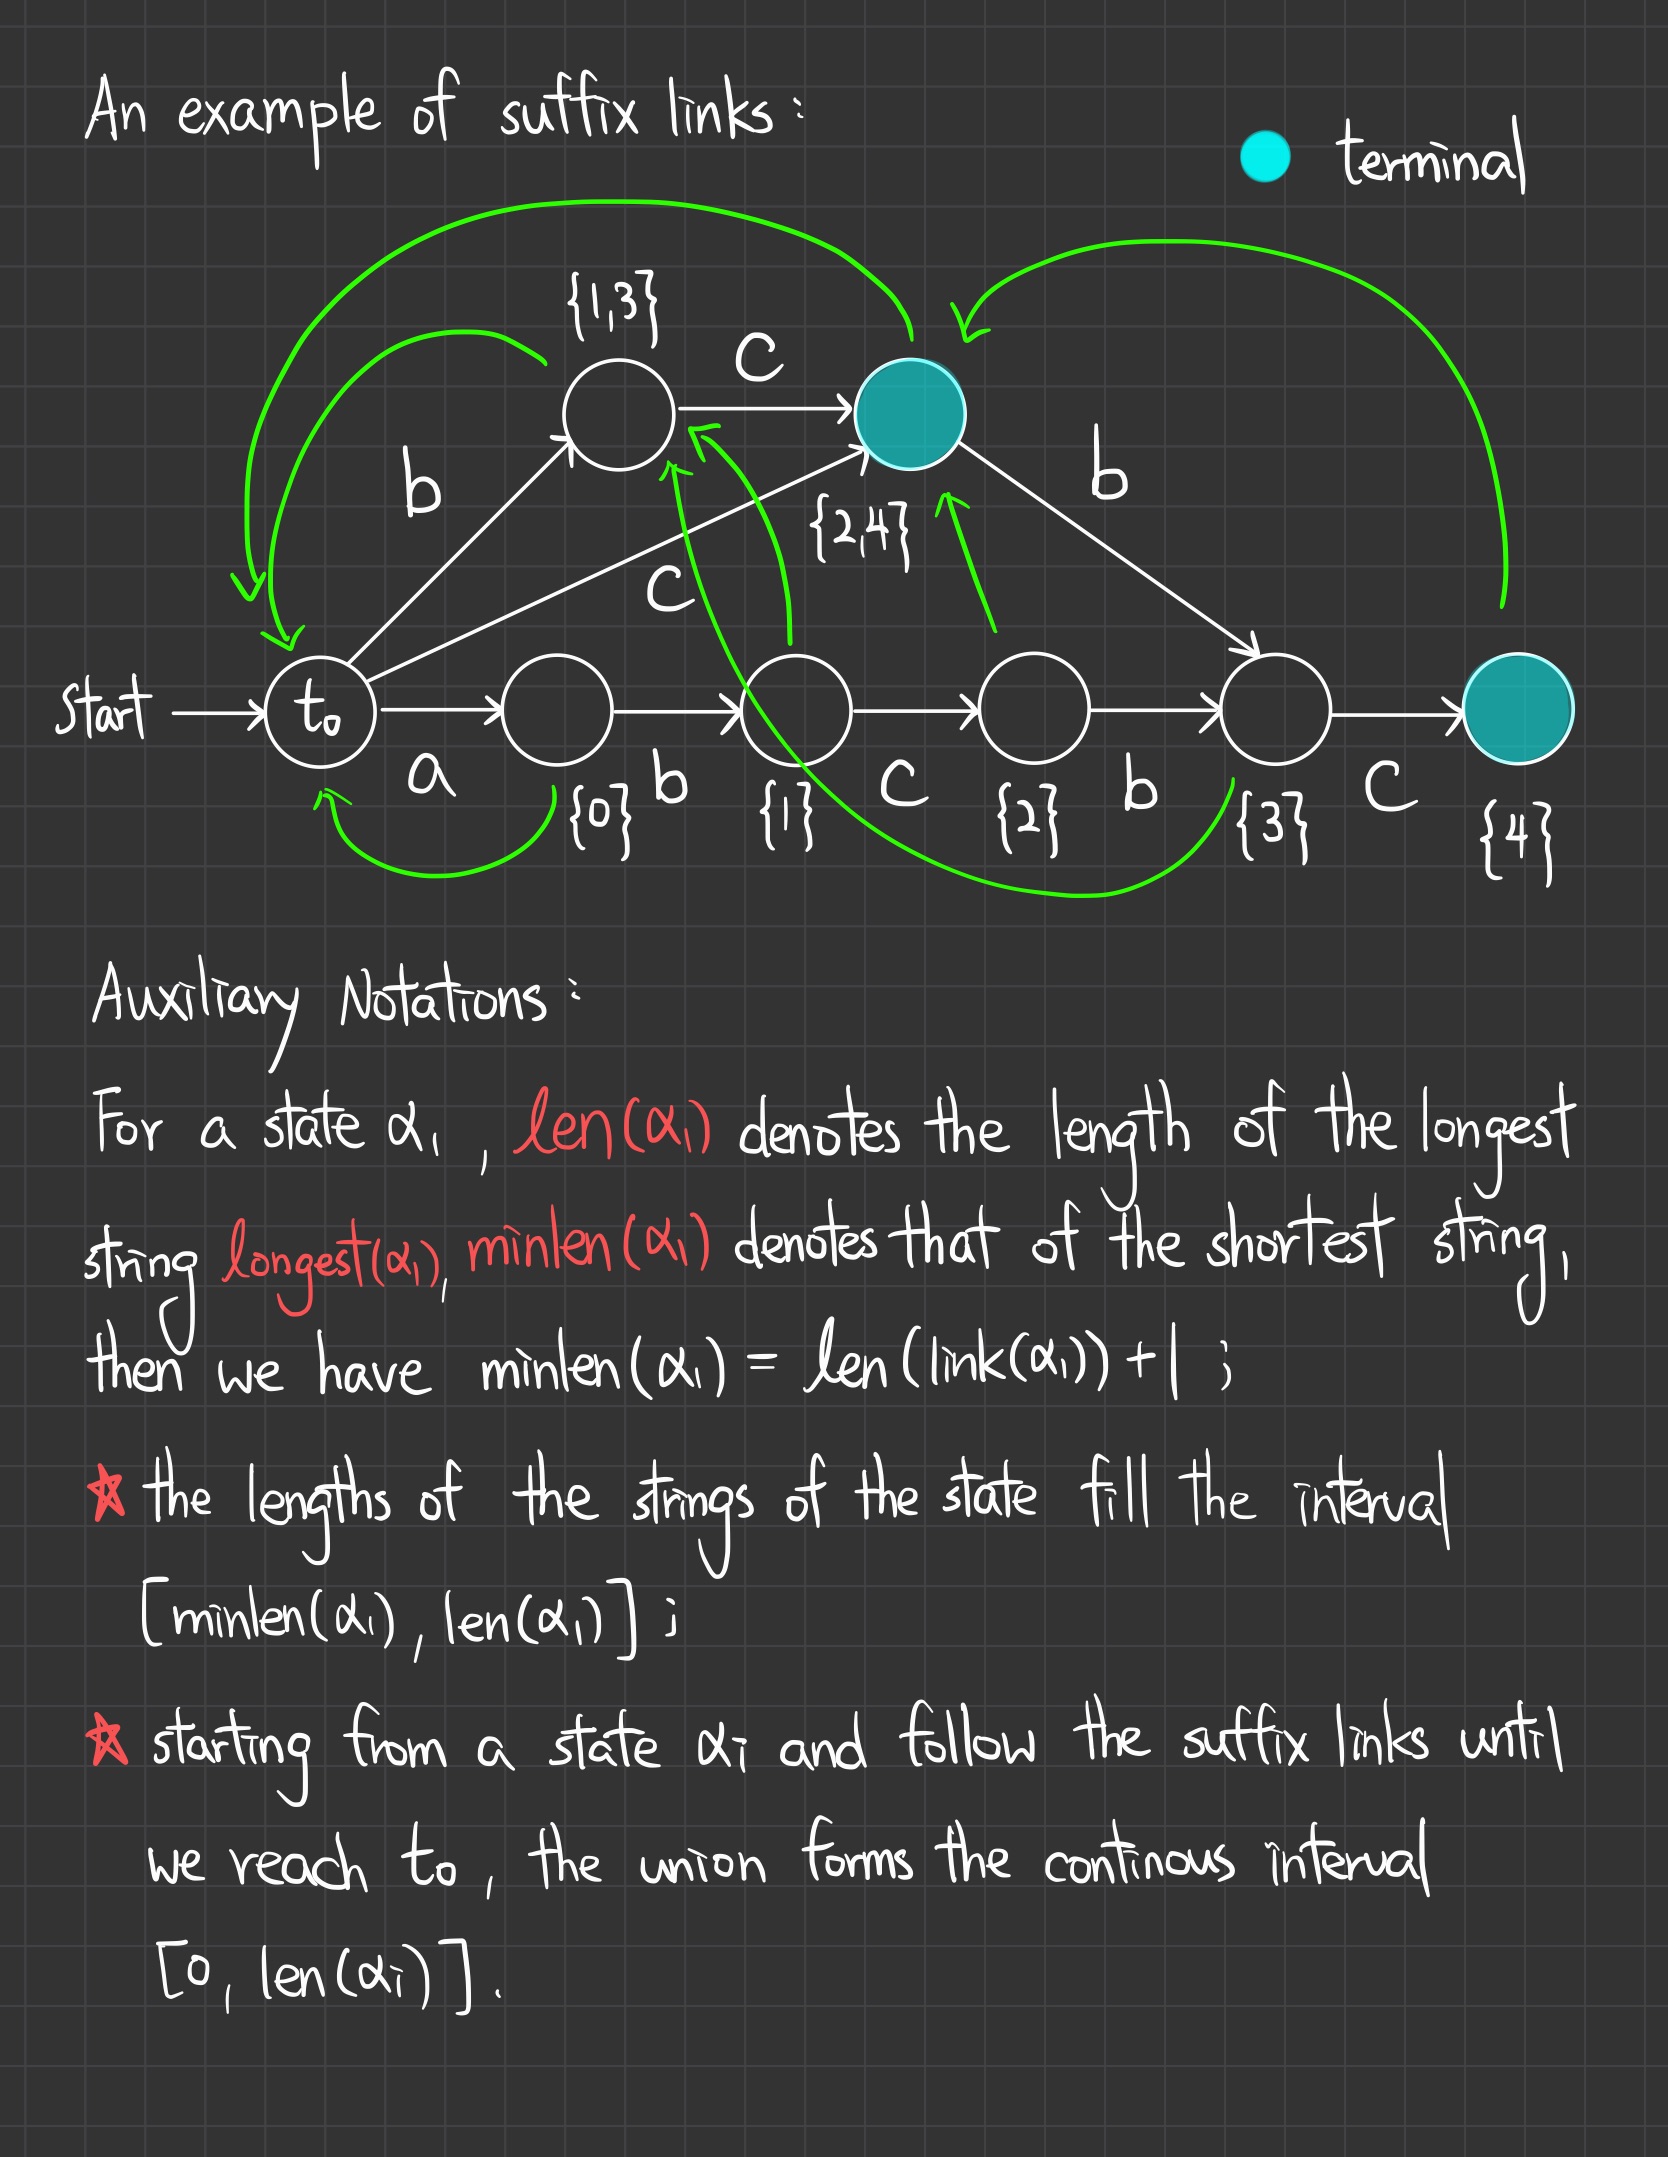 An example of suffix links:
terminal
{1,3}
c
b
b
{2,4}
c
Start
t₀
a
{0}
b
{1}
c
{2}
b
{3}
c
{4}
Auxiliary Notations:
For a state α₁, len(α₁) denotes the length of the longest
string longest(α₁), minlen(α₁) denotes that of the shortest string,
then we have minlen(α₁) = len(link(α₁))+1;
☆ the lengths of the strings of the state fill the interval
[minlen(α₁), len(α₁)];
☆ starting from a state αi and follow the suffix links until
we reach t₀, the union forms the continous interval
[0, len(αi)].